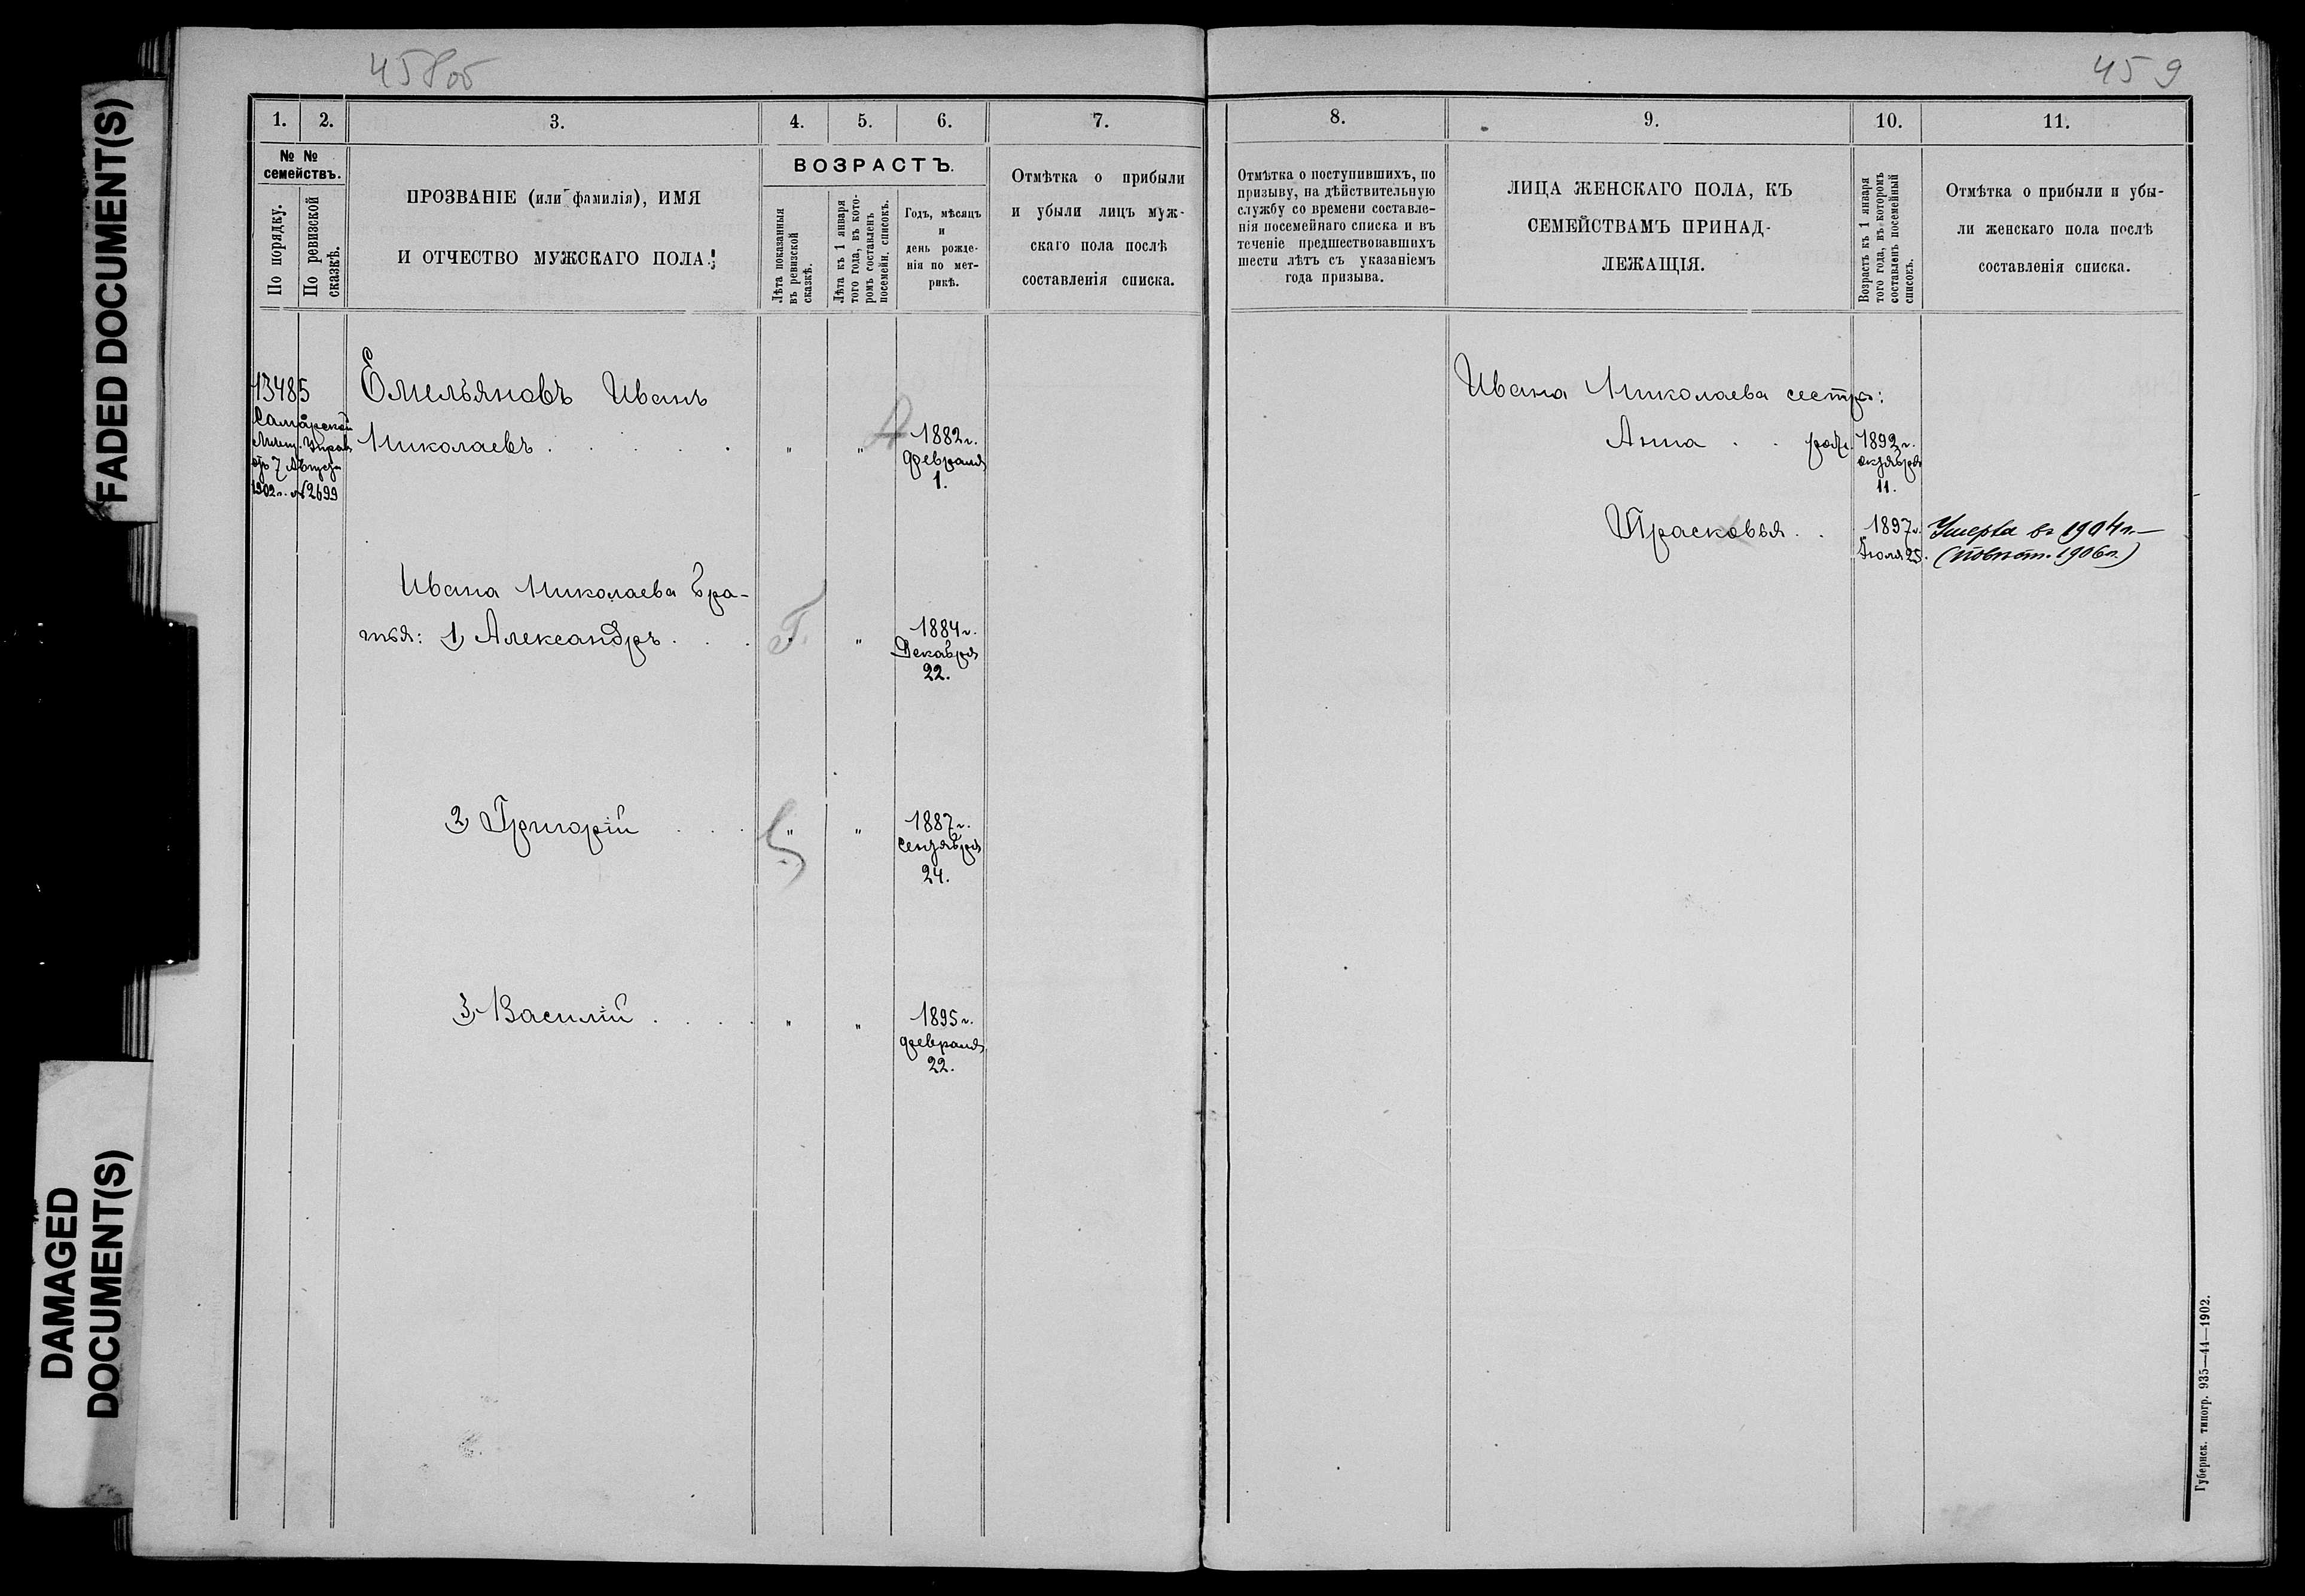 458об
459
FADED DOCUMENT(S)
DAMAGED
DOCUMENT(S)
1.
2.
3.
4.
5.
6.
7.
№ №
семействъ.
По порядку.
По ревизской
сказкѣ.
ПРОЗВАНІЕ (или фамилія), ИМЯ
И ОТЧЕСТВО МУЖСКАГО ПОЛА.
ВОЗРАСТЪ.
Лѣта показанныя
въ ревизской
сказкѣ.
Лѣта къ 1 января
того года, въ кото-
ромъ составленъ
посемейн. списокъ.
Годъ, мѣсяцъ
и
день рожде-
нія по мет-
рикѣ.
Отмѣтка о прибыли
и убыли лицъ муж-
скаго пола послѣ
составленія списка.
13485
Самарской
Мѣщ. Управ
отъ 7 Августа
1902 г. № 2699
Емельяновъ Иванъ
Николаевъ . . . . .
" "
1882 г.
февраля
1.
Ивана Николаева бра-
тья: 1, Александръ . . .
Г. "
1884 г.
Декабря
22.
2, Григорій . . .
" "
1887 г.
сентября
24.
3, Василій . . . .
" "
1895 г.
февраля
22.
8.
9.
10.
11.
Отмѣтка о поступившихъ, по
призыву, на дѣйствительную
службу со времени составле-
нія посемейнаго списка и въ
теченіе предшествовавшихъ
шести лѣтъ съ указаніемъ
года призыва.
ЛИЦА ЖЕНСКАГО ПОЛА, КЪ
СЕМЕЙСТВАМЪ ПРИНАД-
ЛЕЖАЩІЯ.
Возрастъ къ 1 января
того года, въ которомъ
составленъ посемейный
списокъ.
Отмѣтка о прибыли и убы-
ли женскаго пола послѣ
составленія списка.
Ивана Николаева сестры:
Анна . . род.
1892 г.
октября
11.
Прасковья . .
1897 г.
Іюля 25.
Умерла въ 1904 г. —
1906 г.)
Губернск. типогр. 935—44—1902.